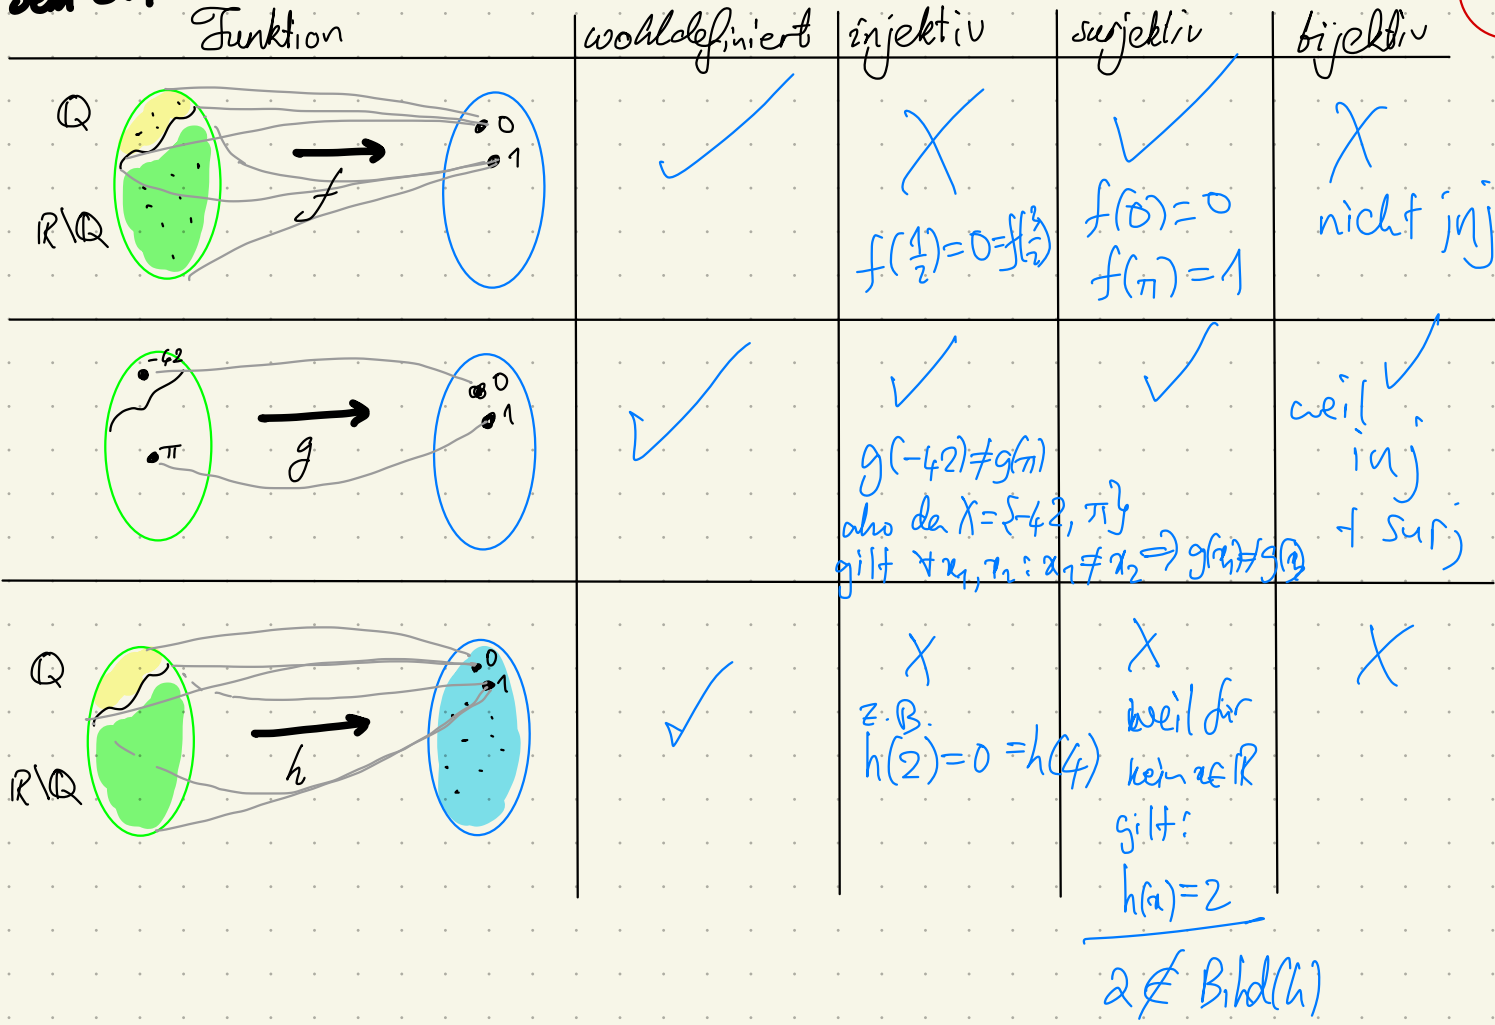 Funktion wohldefiniert injektiv surjektiv bijektiv
ℚ
ℝ\ℚ
0
1
f
f(1/2)=0=f(3/2)
f(0)=0
f(π)=1
nicht inj
-42
π
0
1
g
g(-42)≠g(π)
also da X={-42, π}
gilt ∀x₁,x₂: x₁≠x₂ ⇒ g(x₁)≠g(x₂)
weil
inj
+ surj
ℚ
ℝ\ℚ
0
1
h
z.B.
h(2)=0=h(4)
weil für
kein x∈ℝ
gilt:
h(x)=2
2∉ Bild(h)